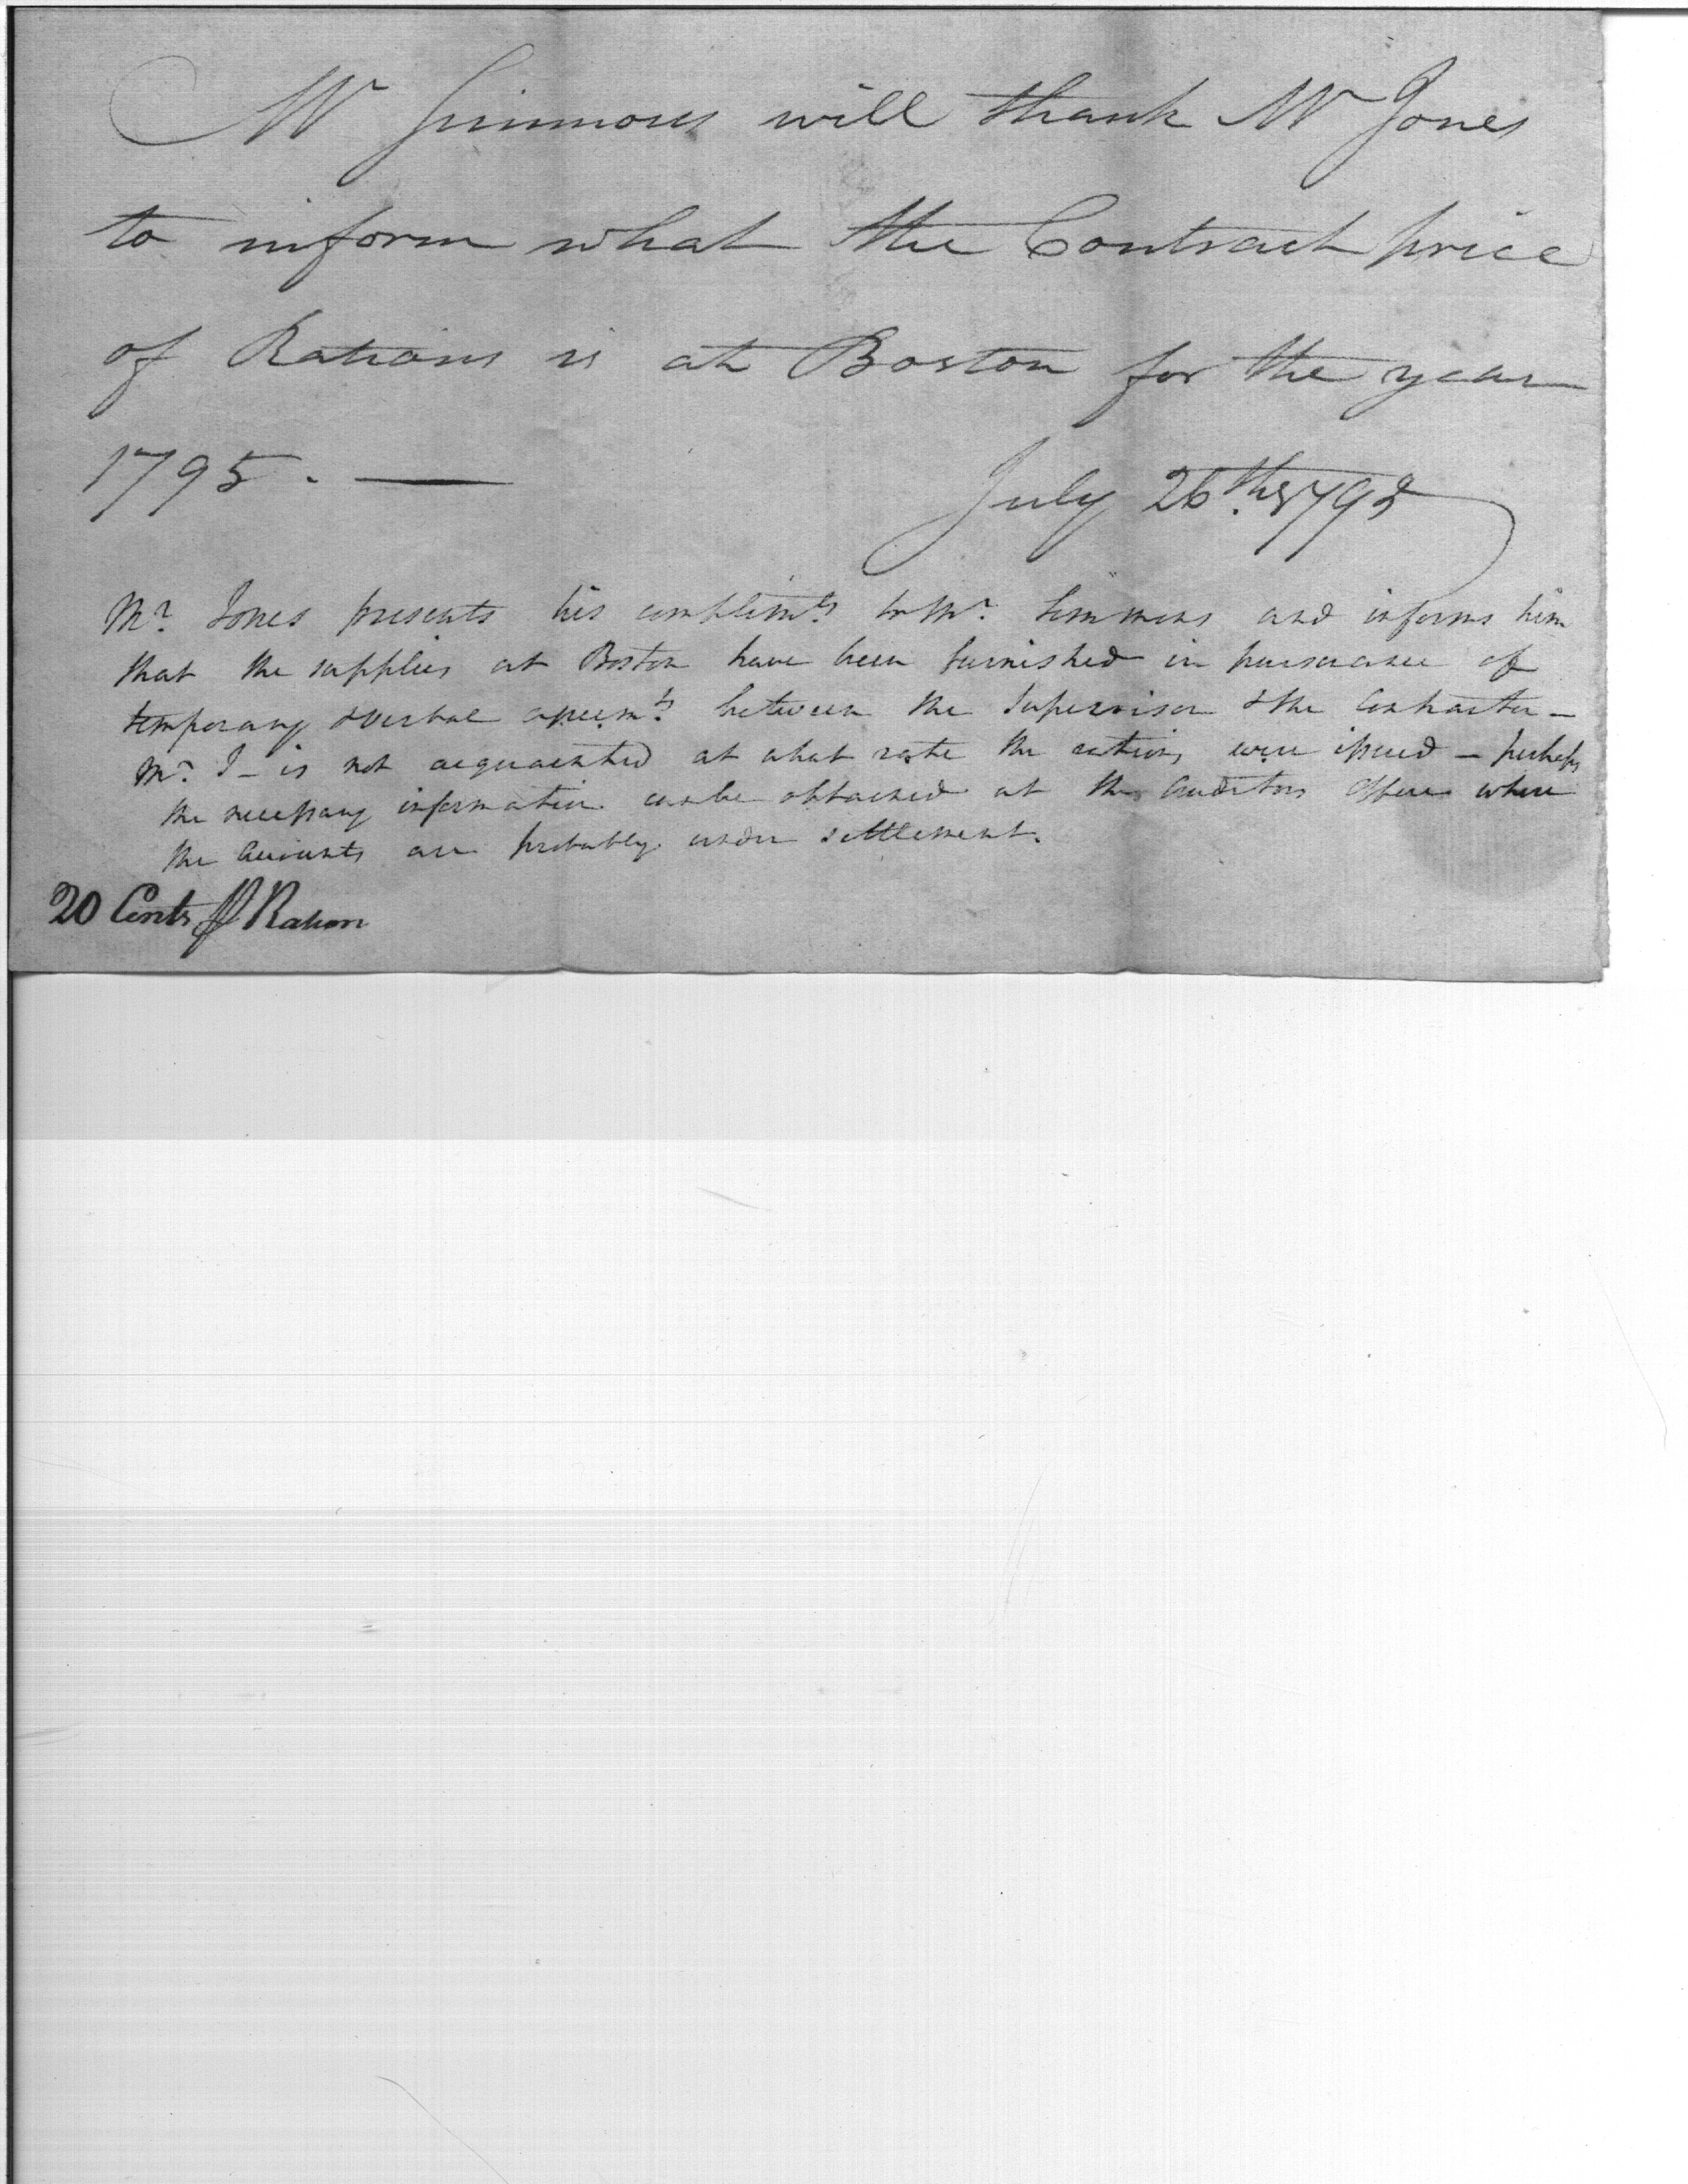 Mr Simmons will thank Mr Jones
to inform what the Contract price
of Rations is at Boston for the year
1795. —
July 26th. 1795
Mr. Jones presents his complimts. to Mr. Simmons and informs him
that the supplies at Boston have been furnished in pursuance of
temporary & verbal agreemts. between the Supervisor & the Contractor –
Mr. J – is not acquainted at what rate the rations were issued – perhaps
the necessary information can be obtained at the Auditors Office where
the Accounts are probably under settlement.
20 Cents P Ration